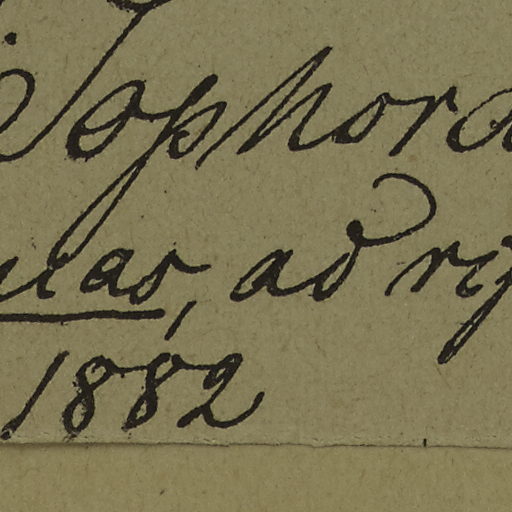 Sophora
ucas, ad rip
1882